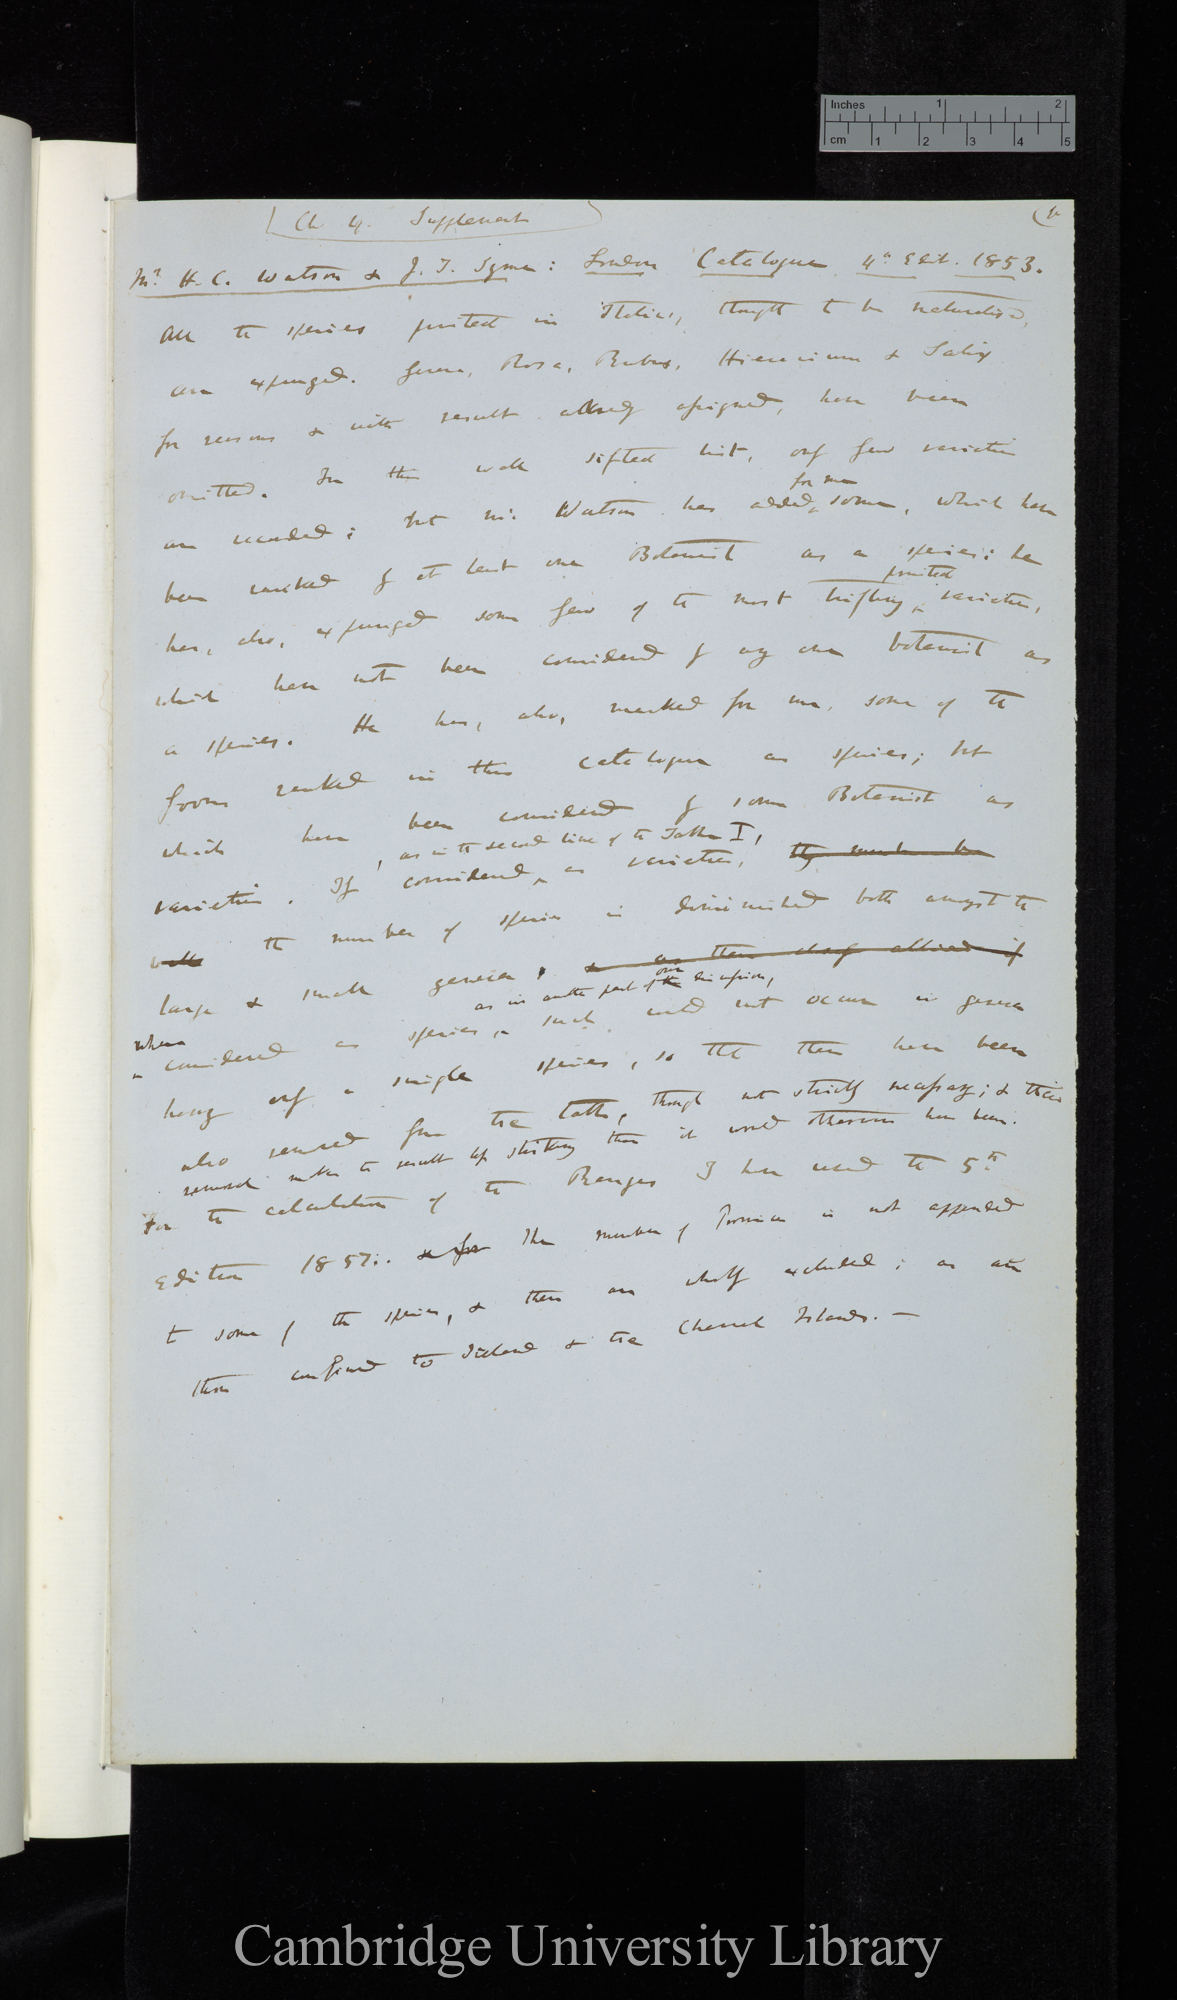 Inches 1 2
cm 1 2 3 4 5
Ch 4. Supplement
Mr. H. C. Watson & J. T. Syme: London Catalogue 4th Edit. 1853.
All the species printed in Italics, thought to be naturalised,
are expunged. Genera, Rosa, Rubus, Hieracium & Salix
for reasons & with result already assigned, have been
omitted. In this well sifted list, only few varieties
for me
are recorded; but Mr. Watson has added, some, which have
been ranked by at least one Botanist as a species: he
printed
has, also, expunged some few of the most trifling varieties,
which have not been considered by any one botanist as
a species. He has, also, marked for me, some of the
forms ranked in this Catalogue as species; but
which have been considered by some Botanist as
, as in the second line of the Table I,
varieties. If considered as varieties, they must be
the number of species is diminished both amongst the
large & small genera, & as these closely allied if
as in another part of the our discussion,
when
considered as species, such could not occur in genera
having only a single species, so that these have been
also removed from the table, though not strictly necessary; & their
removal makes the result less striking than it would otherwise have been.
For the calculation of the Ranges I have used the 5th
Edition 1857: & for The number of Provinces is not appended
to some of the species, & these are wholly excluded; as are
those confined to Ireland & the Channel Islands. —
Cambridge University Library